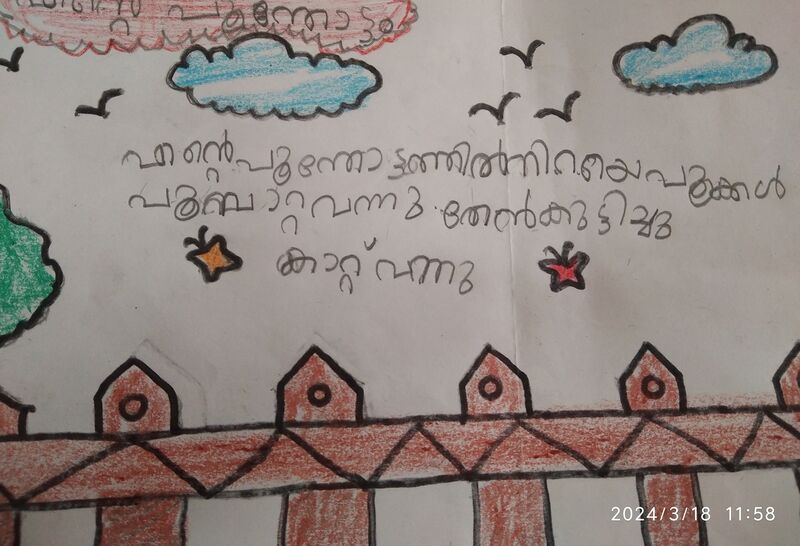 എന്റെ പൂന്തോട്ടം
എന്റെ പൂന്തോട്ടത്തിൽ നിറയെ പൂക്കൾ
പൂമ്പാറ്റ വന്നു തേൻകുടിച്ചു
കാറ്റ് വന്നു
2024/3/18 11:58